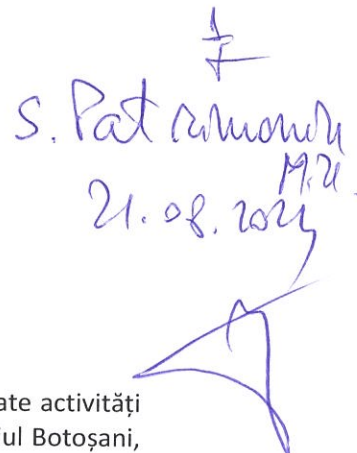 S. Patrimoniu
21.08.2024
ate activități
ul Botoșani,